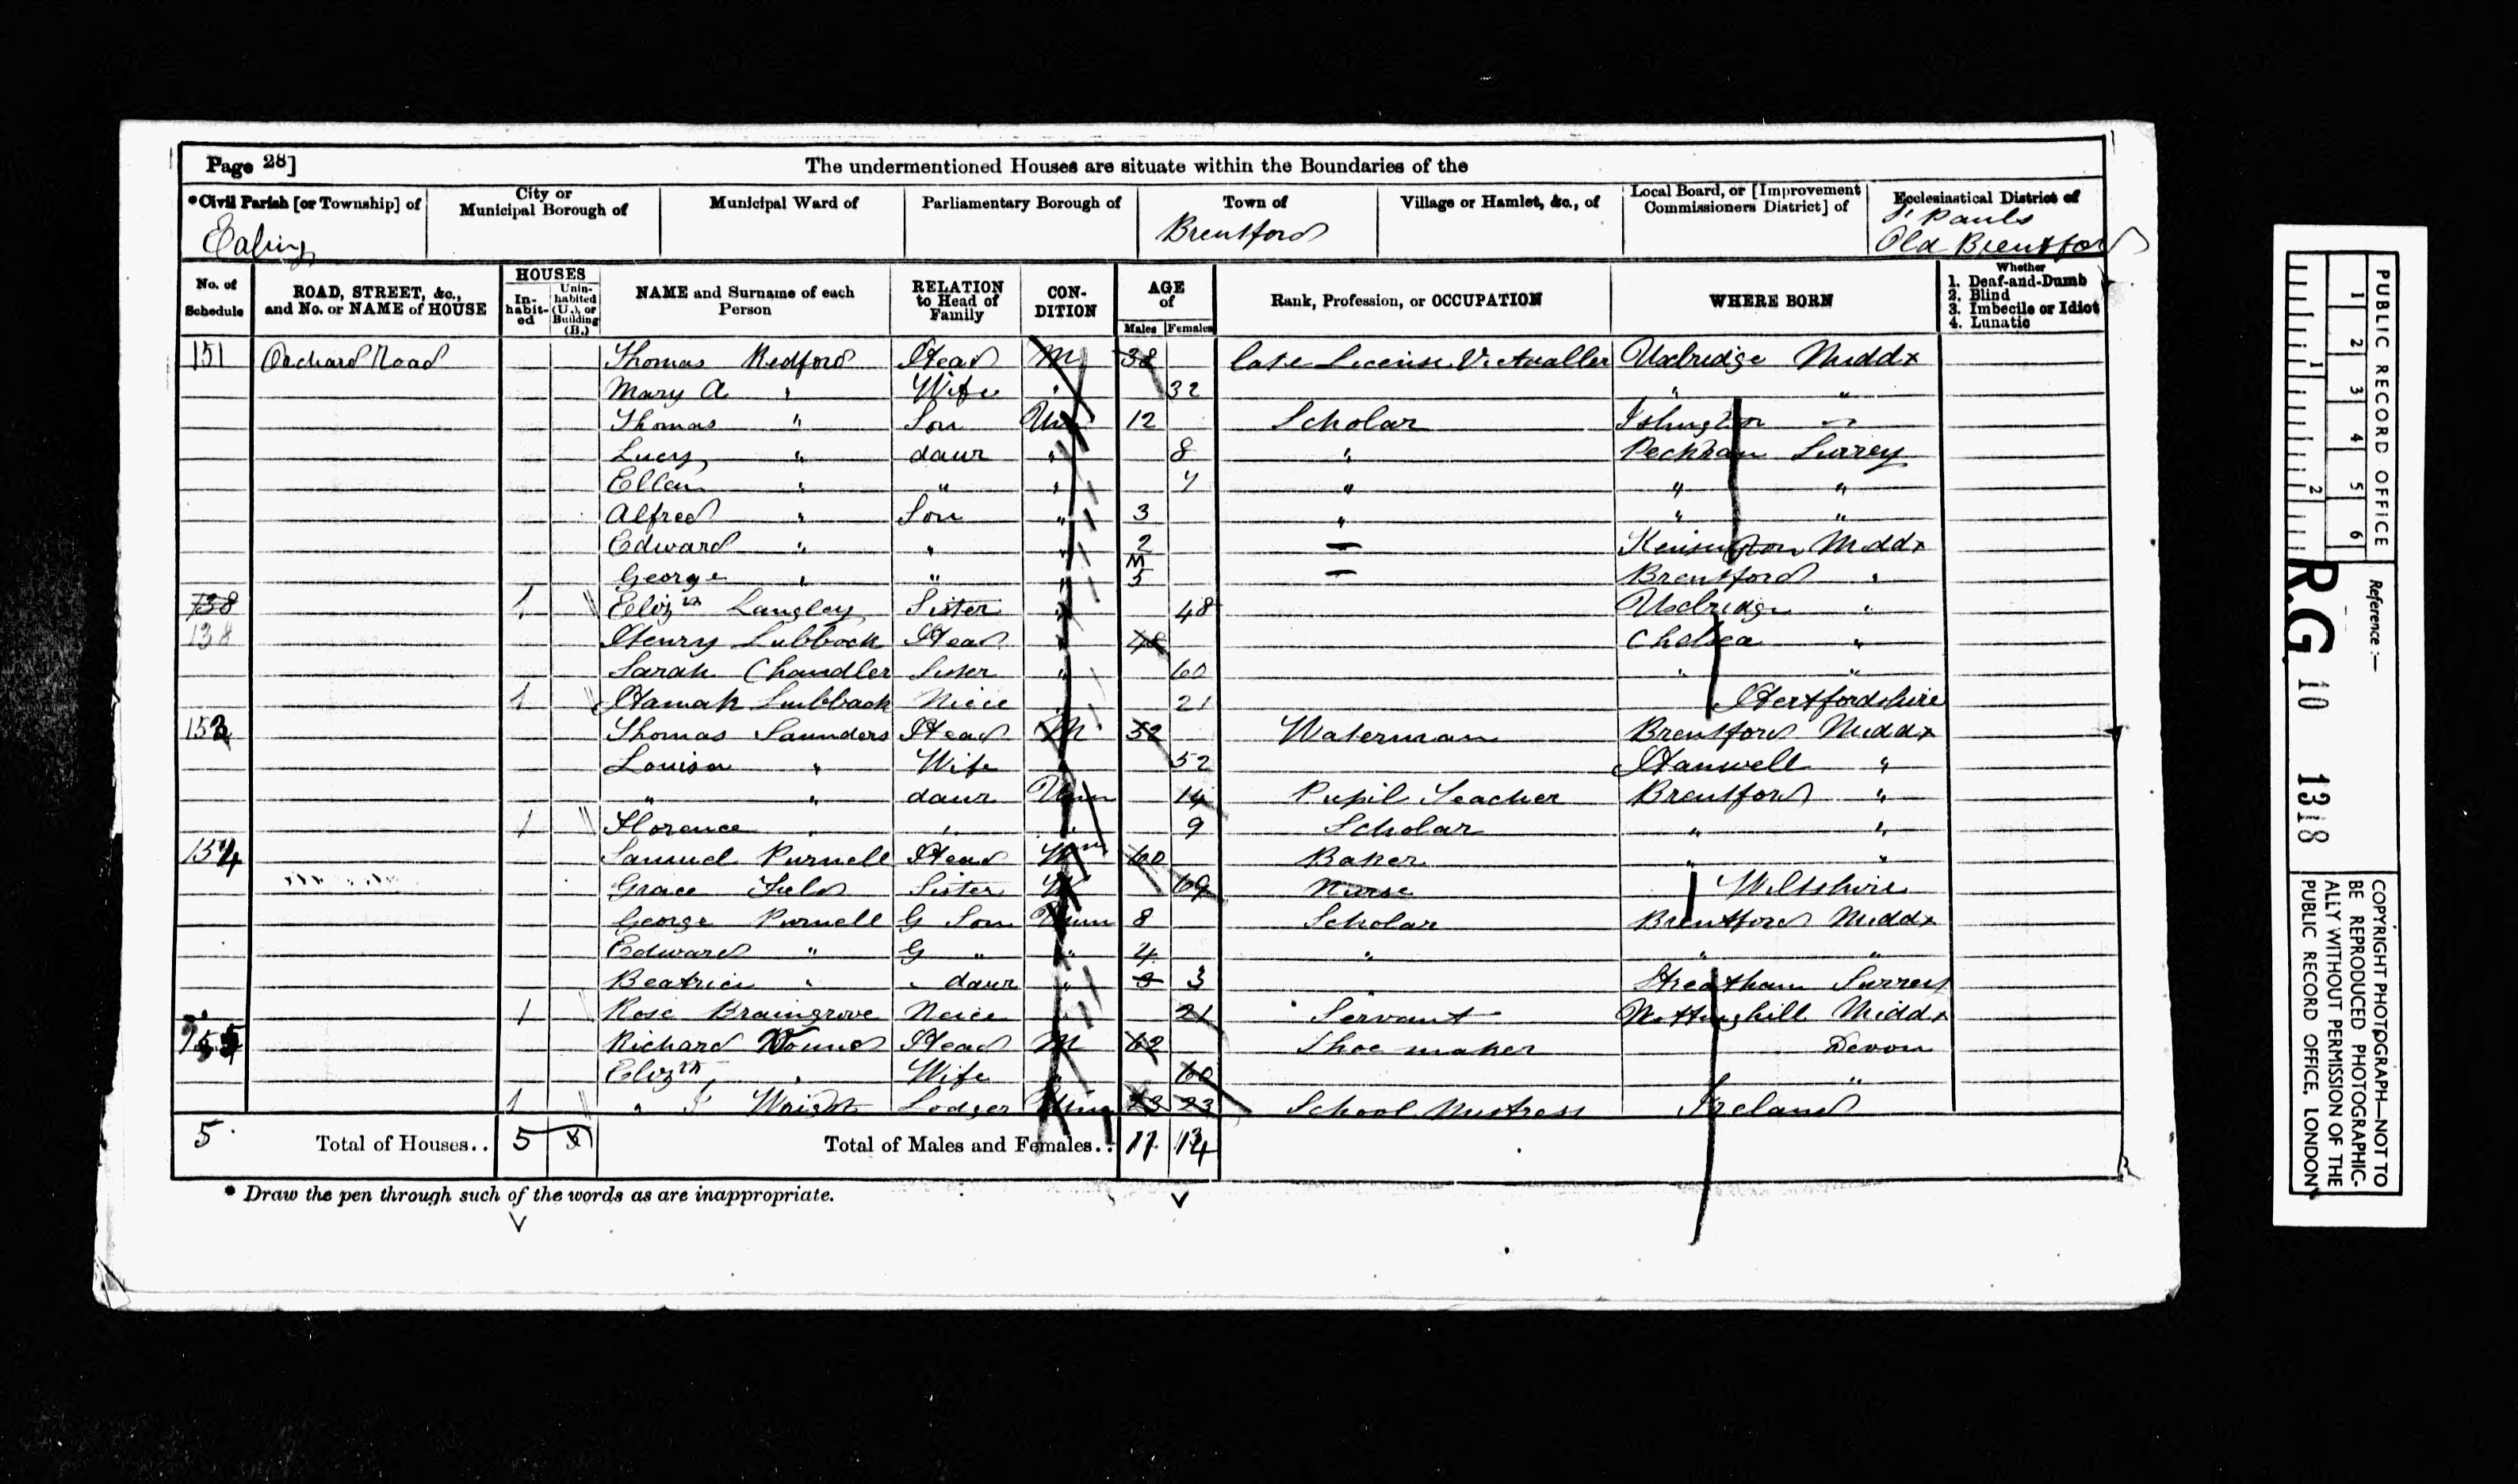 Page 28]
The undermentioned Houses are situate within the Boundaries of the
*Civil Parish [or Township] of
City or Municipal Borough of
Municipal Ward of
Parliamentary Borough of
Town of
Village or Hamlet, &c., of
Local Board, or [Improvement Commissioners District] of
Ecclesiastical District of
Ealing
Brentford
St Pauls
Old Brentford
No. of Schedule
ROAD, STREET, &c., and No. or NAME of HOUSE
HOUSES
In-habit-ed
Unin-habited (U.), or Building (B.)
NAME and Surname of each Person
RELATION to Head of Family
CON-DITION
AGE of
Males
Females
Rank, Profession, or OCCUPATION
WHERE BORN
Whether
1. Deaf-and-Dumb
2. Blind
3. Imbecile or Idiot
4. Lunatic
151 Orchard Road Thomas Redford Head M 38 late License Victualler Uxbridge Middx
Mary A " Wife " 32 " "
Thomas " Son Un 12 Scholar Islington "
Lucy " daur " 8 " Peckham Surrey
Ellen " " " 7 " " "
Alfred " Son " 3 " " "
Edward " " " 2 — Kensington Middx
George " " " M 5 — Brentford "
138 1 Elizth Langley Sister " 48 Uxbridge "
138 Henry Lubbock Head " 48 Chelsea "
Sarah Chandler Sister " 60 " "
1 Hannah Lubbock Niece 21 Hertfordshire
153 Thomas Saunders Head M 52 Waterman Brentford Middx
Louisa " Wife 52 Hanwell "
" " daur Unm 14 Pupil Teacher Brentford "
1 Florence " " " 9 Scholar " "
154 Samuel Purnell Head W 60 Baker " "
Grace Field Sister W 69 Nurse Wiltshire
George Purnell G Son Unm 8 Scholar Brentford Middx
Edward " G " " 4 " " "
Beatrice " " daur " 3 3 Streatham Surrey
1 Rose Braingrove Neice 21 Servant Nottinghill Middx
Richard Head M 62 Shoe maker Devon
Elizth " Wife " 60 "
1 " Wright Lodger Unm 23 23 School Mistress Ireland
5 Total of Houses.. 5
Total of Males and Females.. 11 14
* Draw the pen through such of the words as are inappropriate.
PUBLIC RECORD OFFICE
1 2 3 4 5 6
1 2
Reference :—
R.G. 10 1318
COPYRIGHT PHOTOGRAPH—NOT TO
BE REPRODUCED PHOTOGRAPHIC-
ALLY WITHOUT PERMISSION OF THE
PUBLIC RECORD OFFICE, LONDON